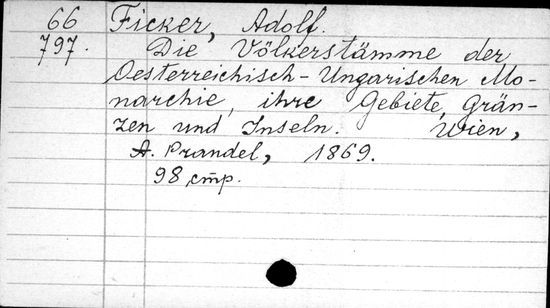 66 Ficker, Adolf.
797. Die Völkerstämme der
Oesterreichisch-Ungarischen Mo-
narchie, ihre Gebiete, Grän-
zen und Inseln. Wien,
A. Prandel, 1869.
98 стр.